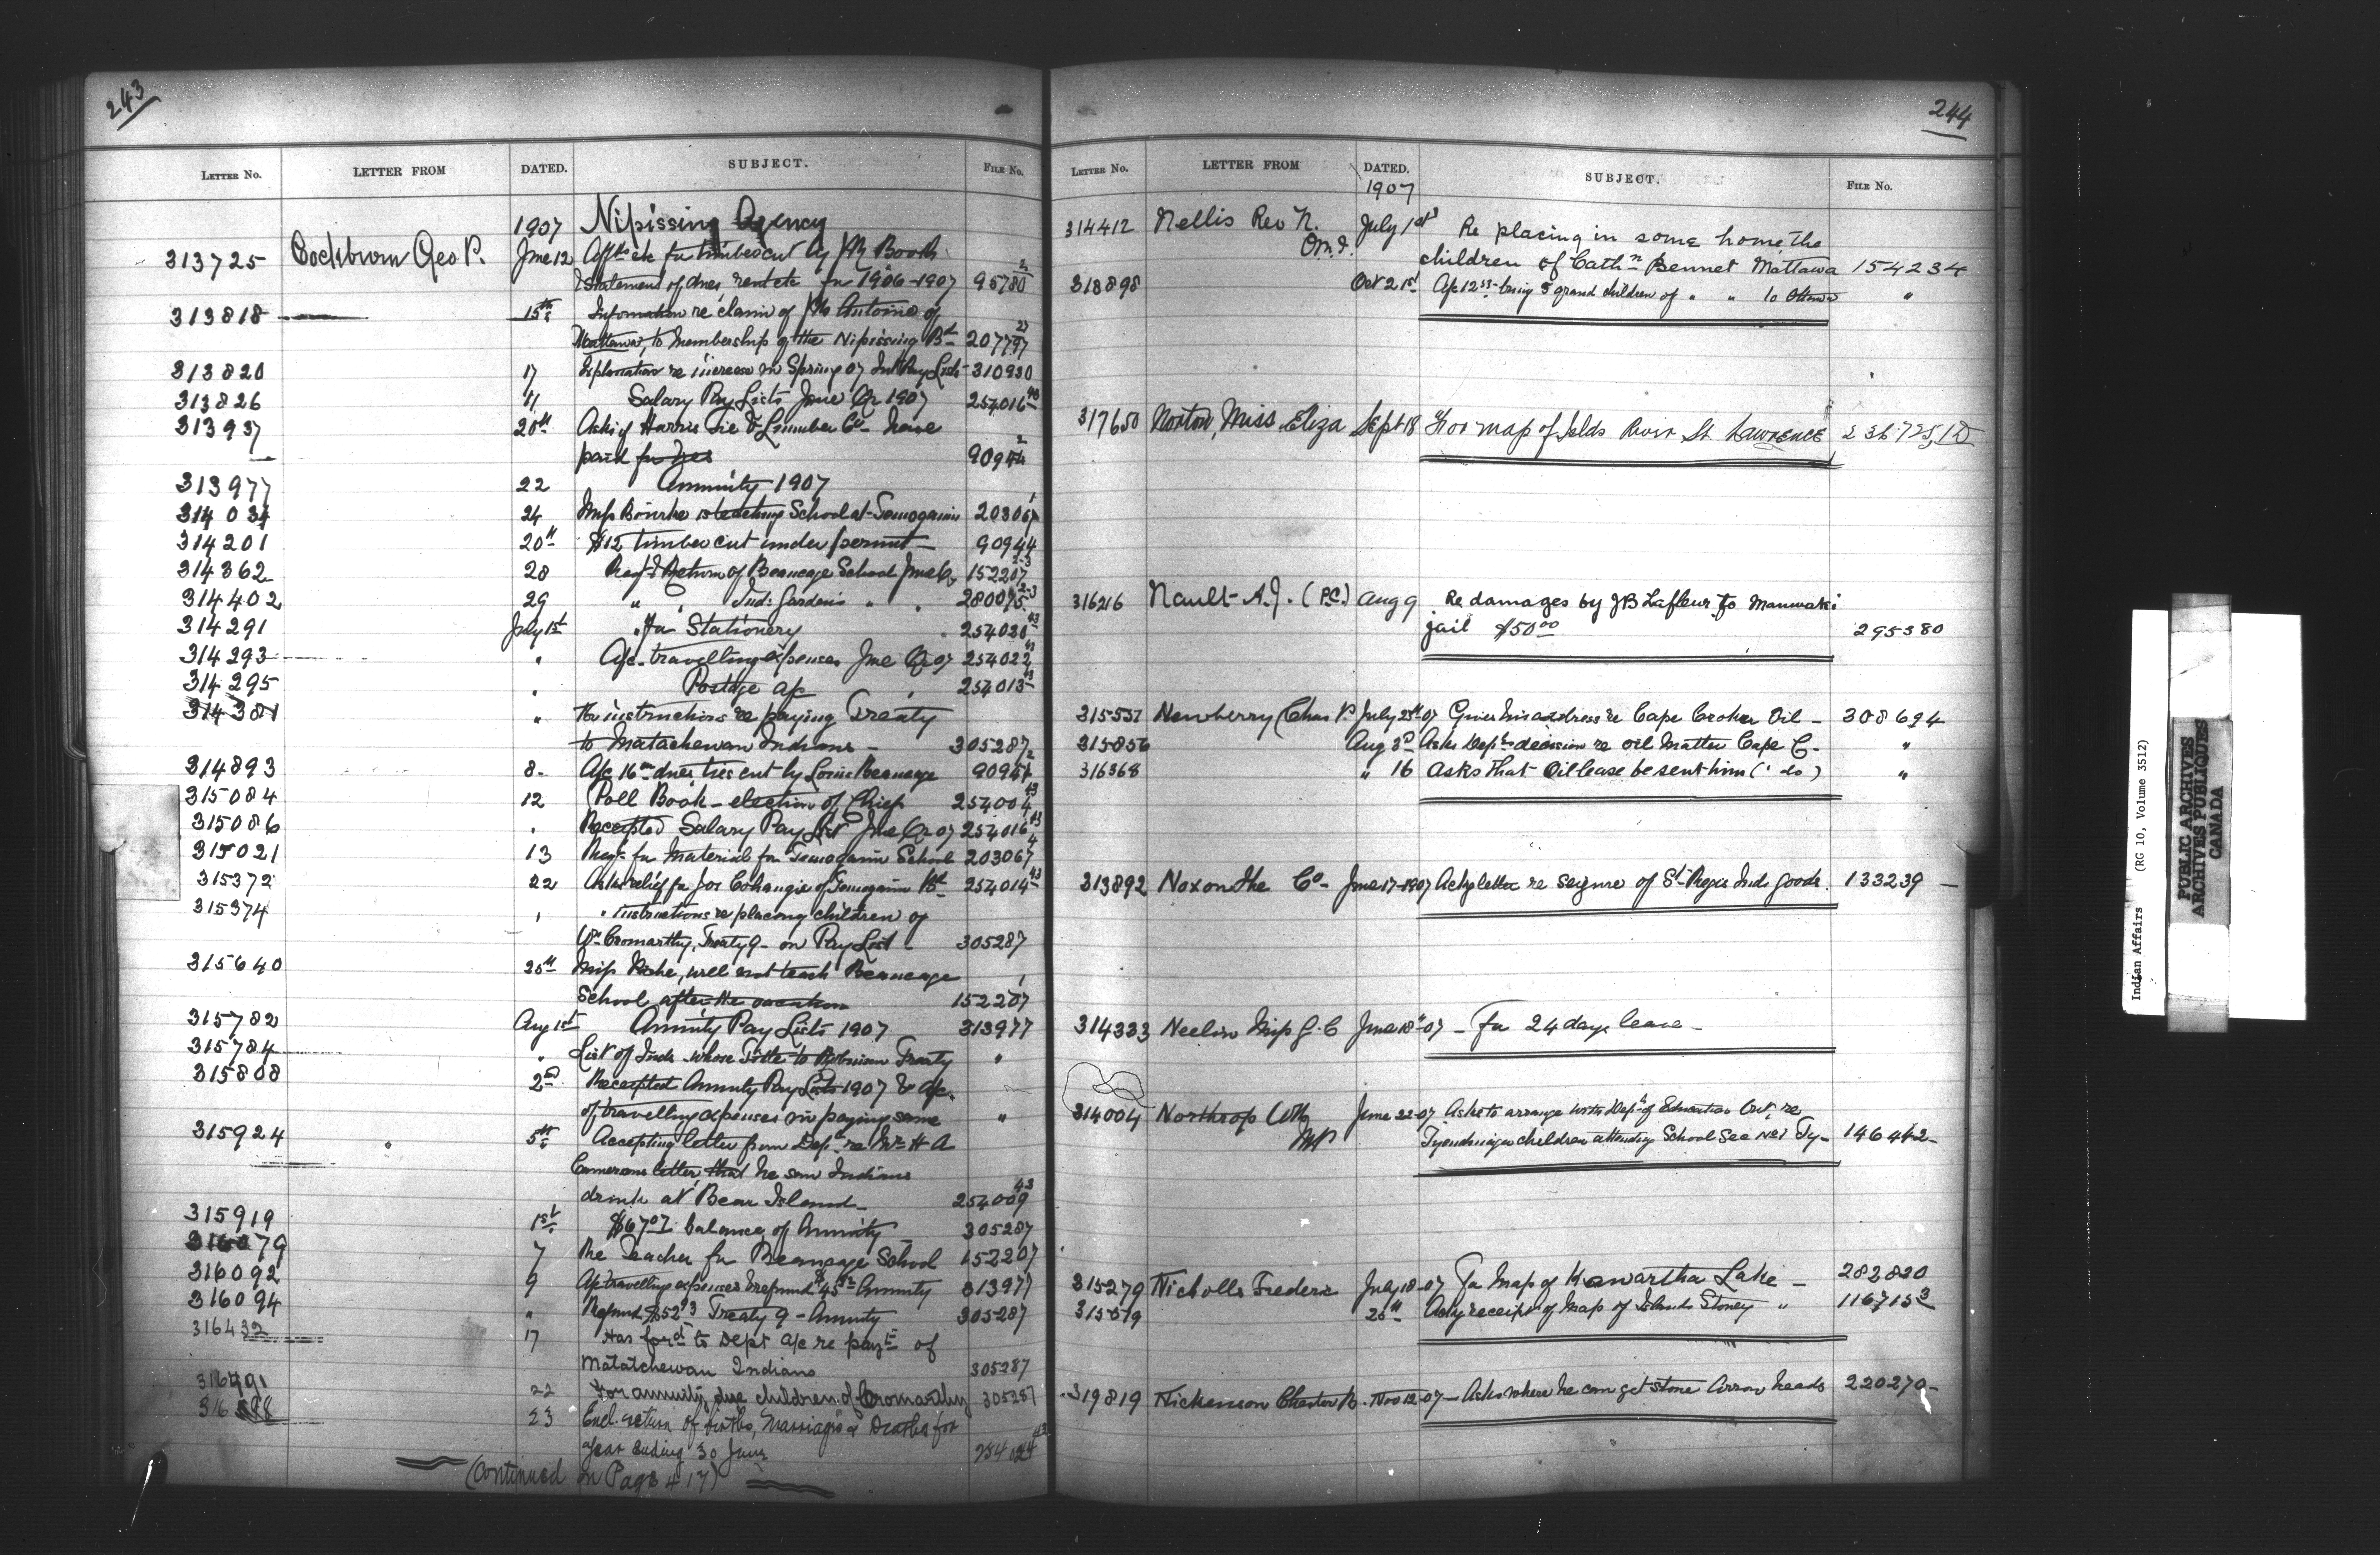 243
LETTER NO. LETTER FROM DATED. SUBJECT. FILE NO.
1907 Nipissing Agency
313725 Cockburn Geo P. June 12 for timber cut by Booth
Statement of dues, rent etc for 1906-1907 95780
313818 15th Information re claim of Antoine of
Mattawa, to Membership of the Nipissing Bd 207797 27
313820 17 Explanation re increase in Spring 07 Int Pay List 310930
313826 " Salary Pay Lists June Qr 1907 254016 40
313937 20th Asks if Harris Tie & Lumber Co have
paid for ties 90944 2
313977 22 Annuity 1907
314034 24 Miss Bourke is teaching School at Temogamin 203067 1
314201 20th $12 timber cut under permit 90944
314362 28 Reqt & Return of Beaucage School June Qr 152207 2-3
314402 29 " " Ind: Gardens " " 280075 2-3
314291 July 1st " for Stationery 254020 43
314293 " A/c travelling expenses June Qr 07 254022 43
314295 " Postage a/c " 254013 43
314381 " For instructions re paying Treaty
to Matachewan Indians 305287
314893 8 A/c dues ties cut by Louis Beaucage 90944 2
315084 12 Poll Book - election of Chief 254004 43
315086 " Receipted Salary Pay List June Qr 07 254016 43
315021 13 Reqt for Material for Temogamin School 203067 4
315372 22 Asks relief for Jos Cohangie of Temogamin Bd 254014 43
315374 " " Instructions re placing children of
Wm Cromarthy, Treaty 9 - on Pay List 305287
315640 25th Miss will not teach Beaucage
School after the vacation 152207 1
315782 Aug 1st Annuity Pay Lists 1907 313977
315784 " List of Inds whose Title to Robinson Treaty "
315808 2nd Receipted Annuity Pay Lists 1907 & a/c
of travelling expenses in paying same "
315924 5th Accepting letter from Dept re Mr H A
Camerons letter, that he saw Indians
drink at Bear Island 254009 43
315919 1st $67 balance of Annuity 305287
316079 7 Re Teacher for Beaucage School 152207
316092 9 A/c travelling expenses & refund $45 Annuity 313977
316094 " Refund $52 Treaty 9 - Annuity 305287
316432 17 Has ford to Dept a/c re payt of
Matatchewan Indians 305287
316491 22 For annuity due children of Cromarthy 305287
23 Encl. return of births, Marriages & Deaths for
year ending 30 June 254024 43
(Continued on Page 417)
244
LETTER NO. LETTER FROM DATED. SUBJECT. FILE NO.
1907
314412 Nellis Rev N. O.M.I. July 1st Re placing in some home, the
children of Cathn Bennet Mattawa 154234
318898 Oct 21st A/c being 5 grand children of " " to Ottawa "
317650 Norton, Miss Eliza Sept 18 For map of Islds River St Lawrence
316216 Nault A.J. (P.C.) Aug 9 Re damages by J B Lafleur to Maniwaki
jail $50.00 295380
315537 Newberry Chas P. July 25th 07 Gives his address re Cape Croker Oil - 308694
315856 Aug 3rd Asks Dept's decision re oil Matter Cape C. "
316368 " 16 Asks that Oil lease be sent him (" do) "
313892 Noxon The Co June 17-1907 Ackg letter re seizure of St Regis Inds goods 133239
314333 Neelin Miss G. C June 18 - 07 - For 24 days leave -
314004 Northrop W B MP June 22-07 Asks to arrange with Dept of Education Ont, re
Tyendinaga children attending School Sec No 1 Ty- 146442
315279 Nicholls Frederic July 18-07 For Map of Kawartha Lake - 282830
315579 25th Ackg receipt of Map of Islands Stoney " 116715 3
319819 Nickerson Chester R. Nov 12-07 - Asks where he can get stone Arrow heads 220270
Indian Affairs (RG 10, Volume 3512)
PUBLIC ARCHIVES
ARCHIVES PUBLIQUES
CANADA